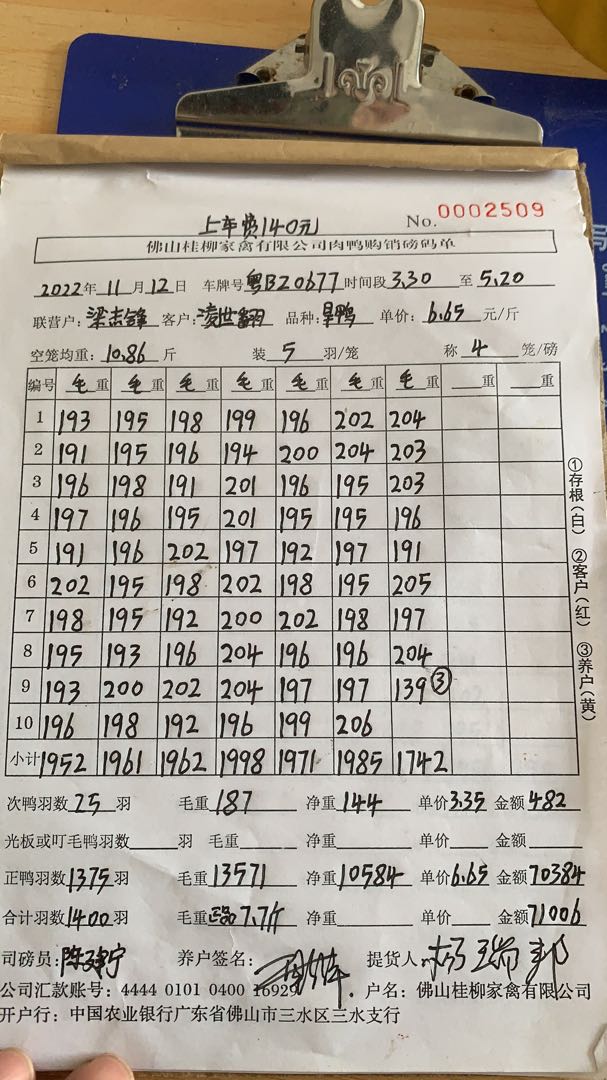 上车费140元 No. 0002509
佛山桂柳家禽有限公司肉鸭购销磅码单
2022年11月12日 车牌号粤BZ0677时间段3.30至5.20
联营户:梁志锋 客户:凌世翻 品种:旱鸭 单价:6.65元/斤
空笼均重:10.86斤 装5羽/笼 称4笼/磅
编号 毛重 毛重 毛重 毛重 毛重 毛重 毛重 重 重
1 193 195 198 199 196 202 204
2 191 195 196 194 200 204 203
3 196 198 191 201 196 195 203
4 197 196 195 201 195 195 196
5 191 196 202 197 192 197 191
6 202 195 198 202 198 195 205
7 198 195 192 200 202 198 197
8 195 193 196 204 196 196 204
9 193 200 202 204 197 197 139③
10 196 198 192 196 199 206
小计 1952 1961 1962 1998 1971 1985 1742
①存根(白) ②客户(红) ③养户(黄)
次鸭羽数25羽 毛重187 净重144 单价3.35 金额482
光板或叮毛鸭羽数 羽 毛重 净重 单价 金额
正鸭羽数1375羽 毛重13571 净重10584 单价6.65 金额70384
合计羽数1400羽 毛重 7.7斤 净重 单价 金额71006
司磅员:陈建宁 养户签名: 提货人:杨瑞邦
公司汇款账号:4444 0101 0400 16929 户名:佛山桂柳家禽有限公司
开户行:中国农业银行广东省佛山市三水区三水支行